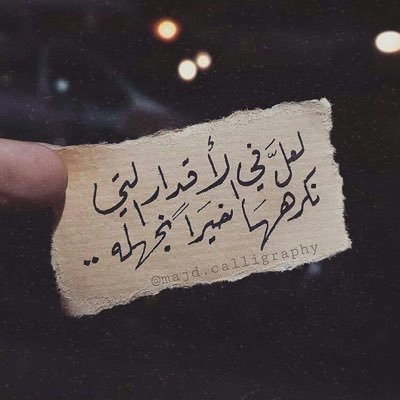 لعلَّ في الأقدار التي
نكرهها خيرًا نجهله ..
@majd.calligraphy